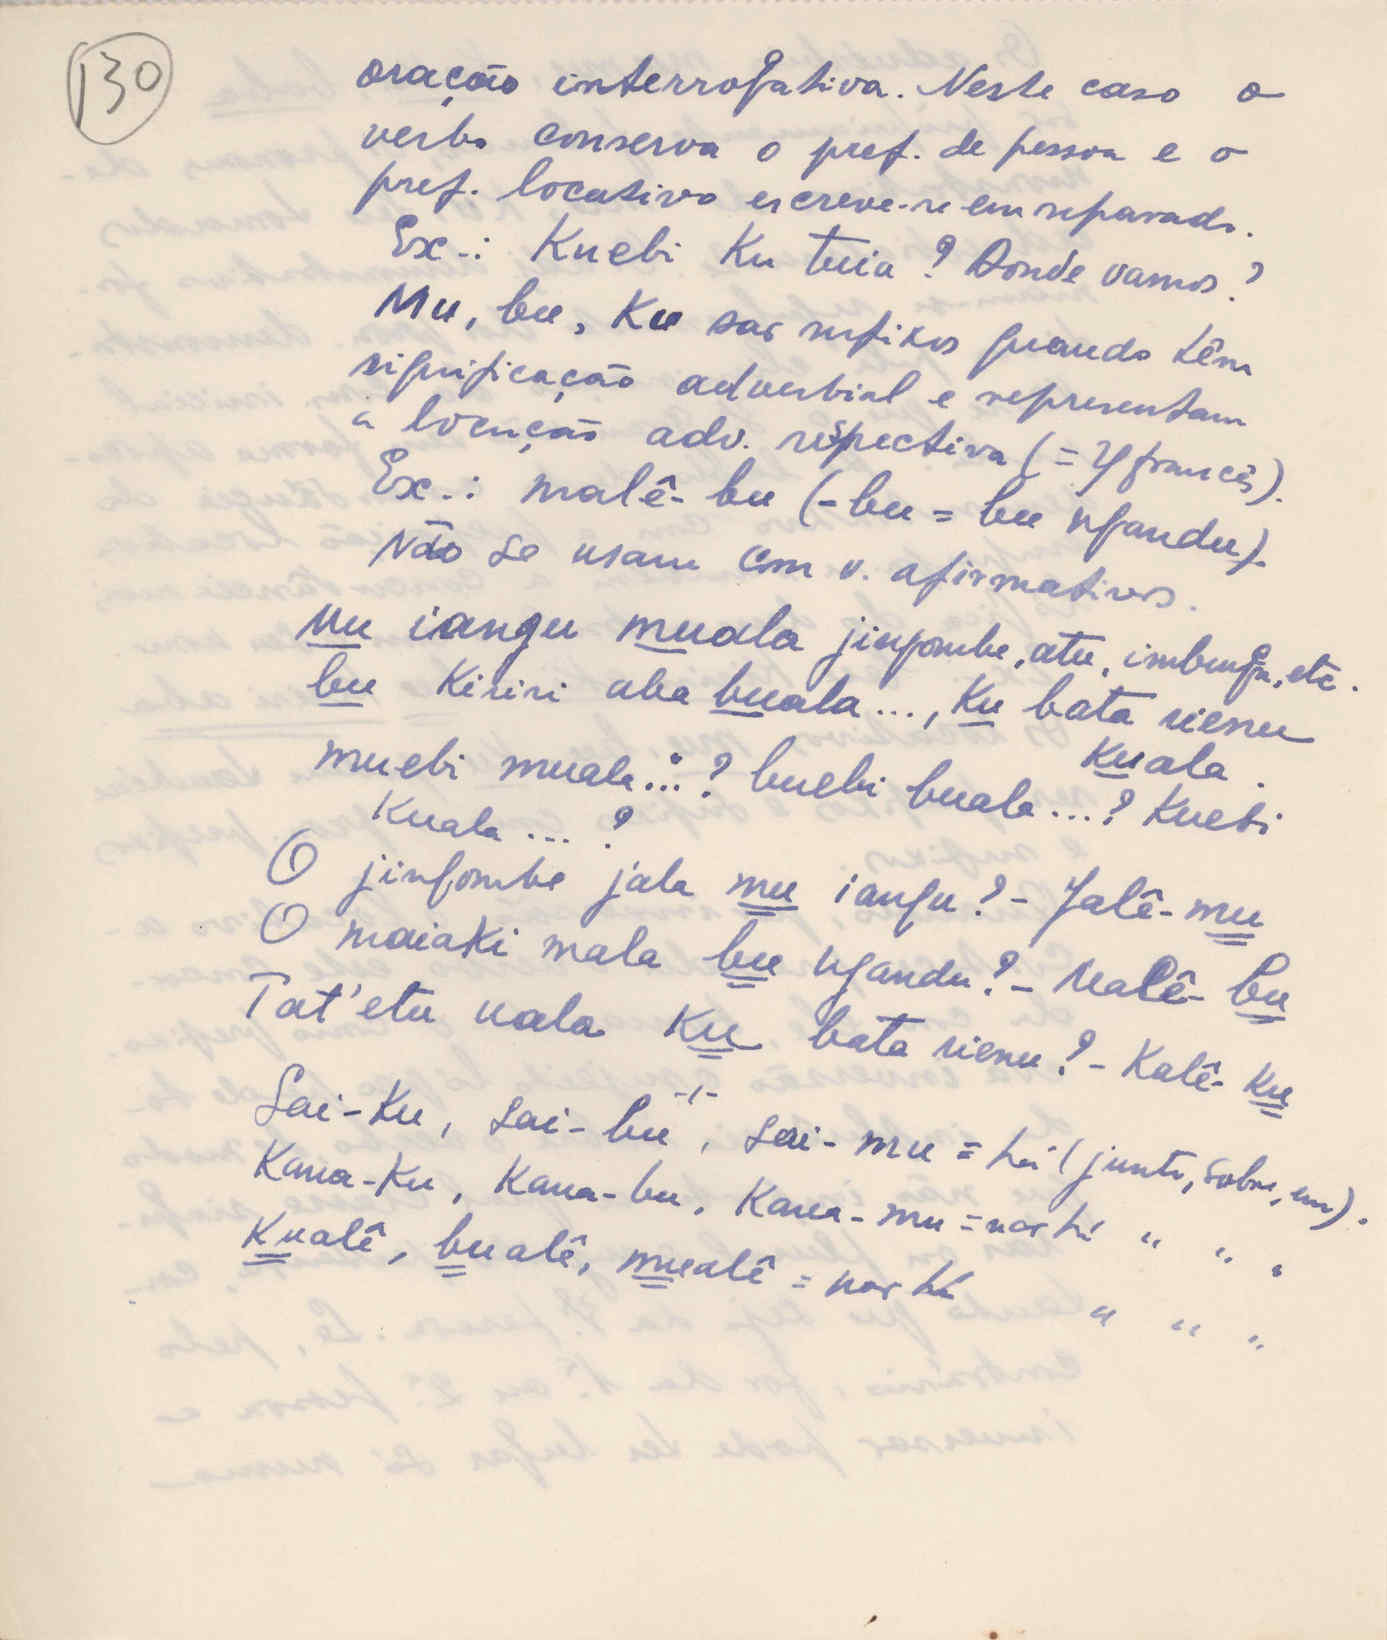 130
oração interrogativa. Neste caso o
verbo conserva o pref. de pessoa e o
pref. locativo escreve-se em separado.
Ex.: Kuebi Ku tuia? Donde vamos?
Mu, bu, Ku são sufixos quando têm
significação adverbial e representam
a locução adv. respectiva (= Y francês).
Ex.: malê-bu (-bu = bu ngandu).
Não se usam com v. afirmativos.
Mu iangu muala jingombe, atu, imbunga, etc.
bu Kiriri aba buala..., Ku bata rienu
Kuala.
muebi muala...? buebi buala...? Kuebi
Kuala...?
O jingombe jala mu iangu? - Jalê-mu
O maiaki mala bu ngandu? - Malê-bu
Tat'etu uala Ku bata rienu? - Kalê-Ku
-/-
Sai-Ku, sai-bu, sai-mu = há (junto, sobre, em).
Kana-Ku, Kana-bu, Kana-mu = não há " " "
Kualê, bualê, mualê = não há " " "